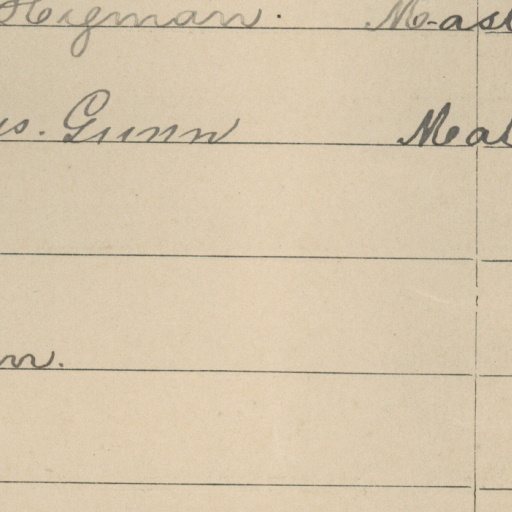 Hegman. Mast
us. Gunn Mat
nn.